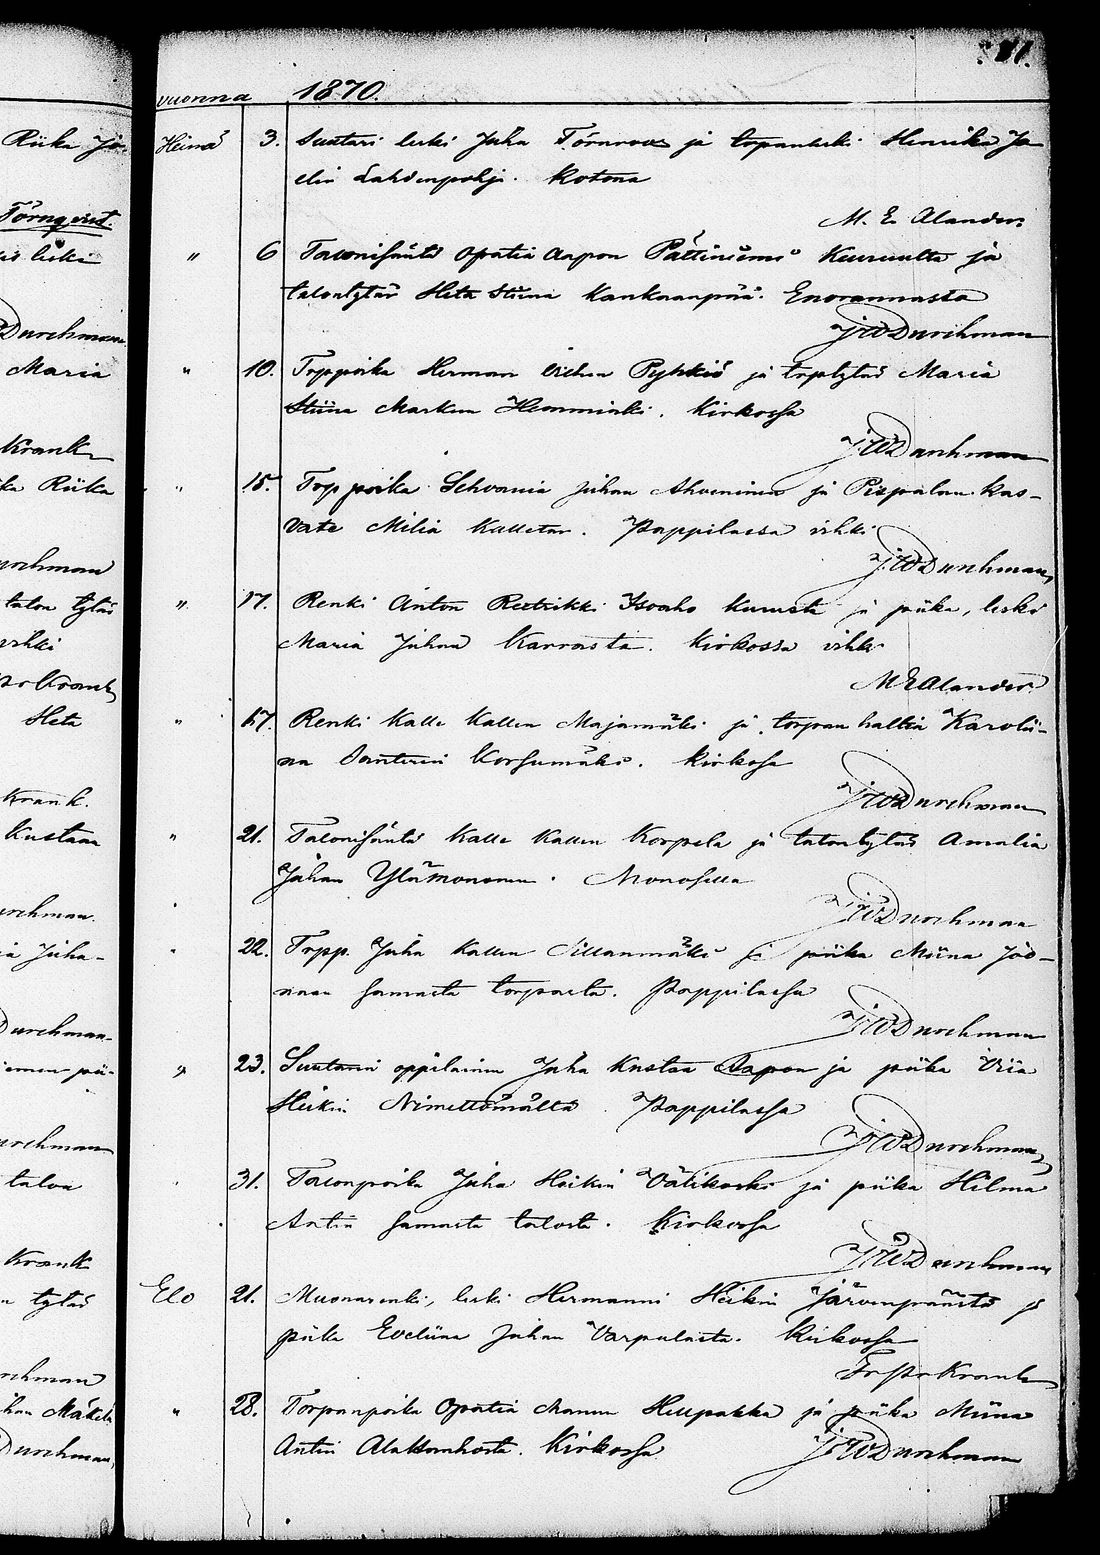 Riika Jo-
Törnqvist.
leski
Durchman
Maria
Krank
Riika
urchman
talon tytär
vihki
Krank
Heta
Krank.
Kustaan
urchman.
Juha-
Durchman
urchman
talon
Krank
tytär
urchman
Mäkelä
Durchman
81.
vuonna 1870.
Heinä 3. Suutari leski Juha Törnroos ja torpanleski Henrika Jo
elin Lahdenpohja. Kotona
M. E. Alander.
" 6 Talonisäntä Opatia Aapon Pättiniemi Keuruulta ja
talontytär Heta Stiina Kankaanpää. Enorannasta
J W Durchman
" 10. Trppoika Herman Vilhen Pyhkiö ja trptytär Maria
Stiina Markun Hemminki. Kirkossa
J. W Durchman
" 15. Trppoika Sehvania Juhan Ahveninen ja Pirpalan kas-
vate Milia Kalletar. Pappilassa vihki
J. W Durchman
" 17. Renki Anton Retrikki Isoaho Kurusta ja piika, leski
Maria Juhna Karrasta. Kirkossa vihki
M E Alander.
" 17. Renki Kalle Kallen Majamäki ja torpan haltia Karolii-
na Santerin Korsumäki. Kirkossa
J W Durchman
" 21. Talonisäntä Kalle Kallen Korpela ja talontytär Amalia
Juhan Ylämononen. Monosella
J W Durchman
" 22. Trpp. Juha Kallen Sillanmäki ja piika Miina Joo-
naan samasta torpasta. Pappilassa
J W Durchman
" 23. Suutarin oppilainen Juha Kustaa Aapon ja piika Viia
Heikin Nimettömältä. Pappilassa
J W Durchman
31. Talonpoika Juha Heikin Välikoski ja piika Hilma
Antin samasta talosta. Kirkossa
J. W Durchman
Elo 21. Muonarenki, leski Hermanni Heikin Järvenpäästä ja
piika Eveliina Juhan Varpulasta. Kirkossa
Krank
" 28. Torpanpoika Opatia Manun Heupakka ja piika Miina
Antin Alaksomhosta. Kirkossa
J W Durchman